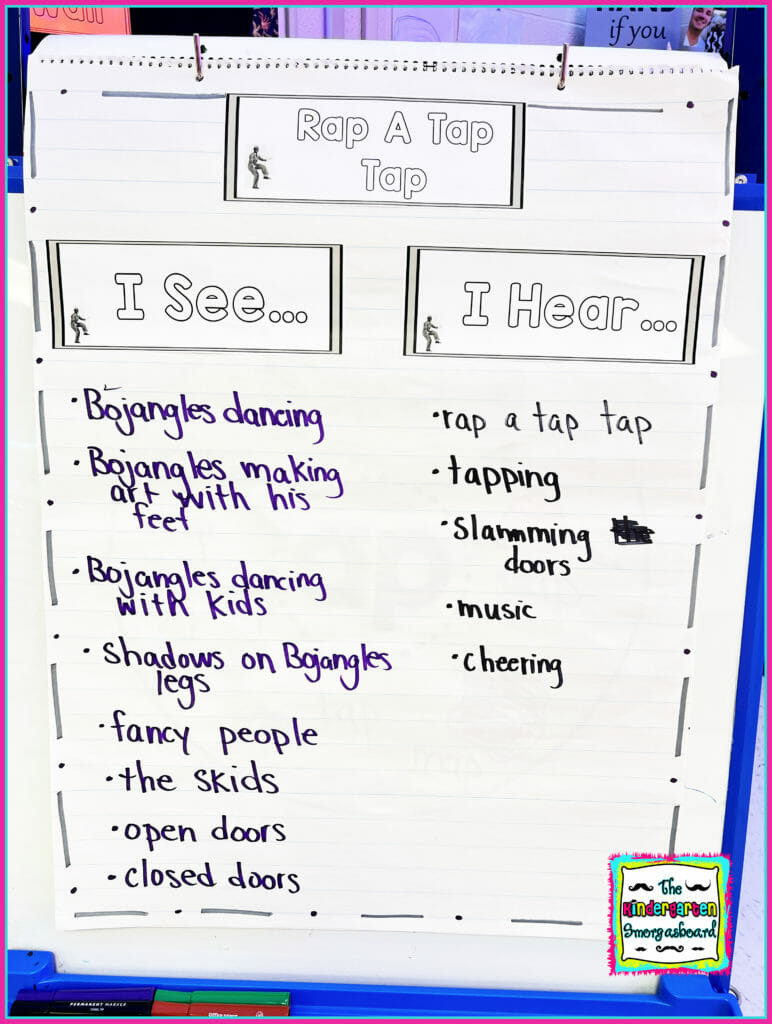 HAND
if you
Rap A Tap
Tap
I See...
•Bojangles dancing
•Bojangles making
art with his
feet
•Bojangles dancing
with kids
•shadows on Bojangles
legs
•fancy people
•the skids
•open doors
•closed doors
I Hear...
•rap a tap tap
•tapping
•slammming
doors
•music
•cheering
The
Kindergarten
Smorgasboard
PERMANENT MARKER